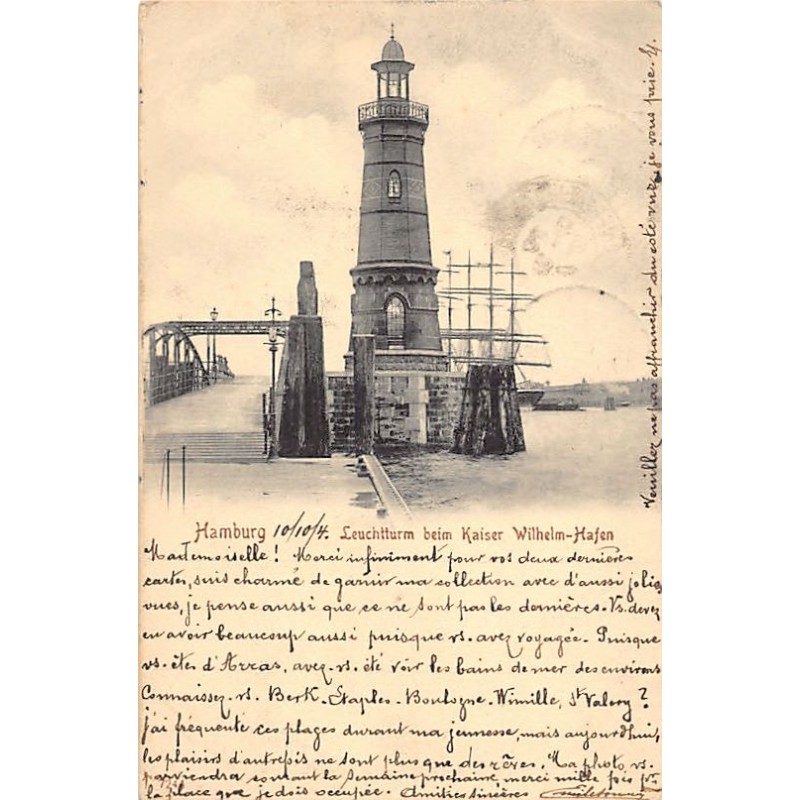 Hamburg 10/10/4. Leuchtturm beim Kaiser Wilhelm-Hafen
Mademoiselle! Merci infiniment pour vos deux dernières
cartes, suis charmé de garnir ma collection avec d'aussi jolies
vues, je pense aussi que ce ne sont pas les dernières. Vs. devez
en avoir beaucoup aussi puisque vs. avez voyagée. Puisque
vs. êtes d'Arras, avez. vs. été voir les bains de mer des environs
Connaissez. vs. Berk. Étaples. Boulogne. Wimille, St Valery?
j'ai fréquenté ces plages durant ma jeunesse, mais aujourd'hui,
les plaisirs d'autrefois ne sont plus que des rêves. Ma photo, vs.
parviendra courant la semaine prochaine, merci mille fois pr.
la place que je dois occupée. Amitiés sincères
Veuillez ne pas affranchir du coté vue, je vous prie.